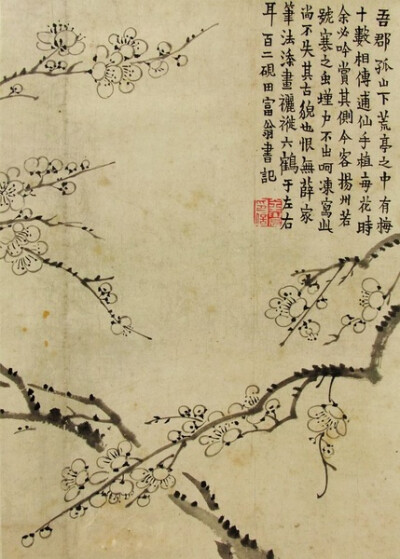 吾郡孤山下荒亭之中有梅
十數相傳逋仙手植每花時
余必吟賞其側今客揚州若
號寒之虫墐戶不出呵凍寫此
尚不失其古貌也恨無薛家
筆法添畫褵褷六鶴于左右
耳 百二硯田富翁書記